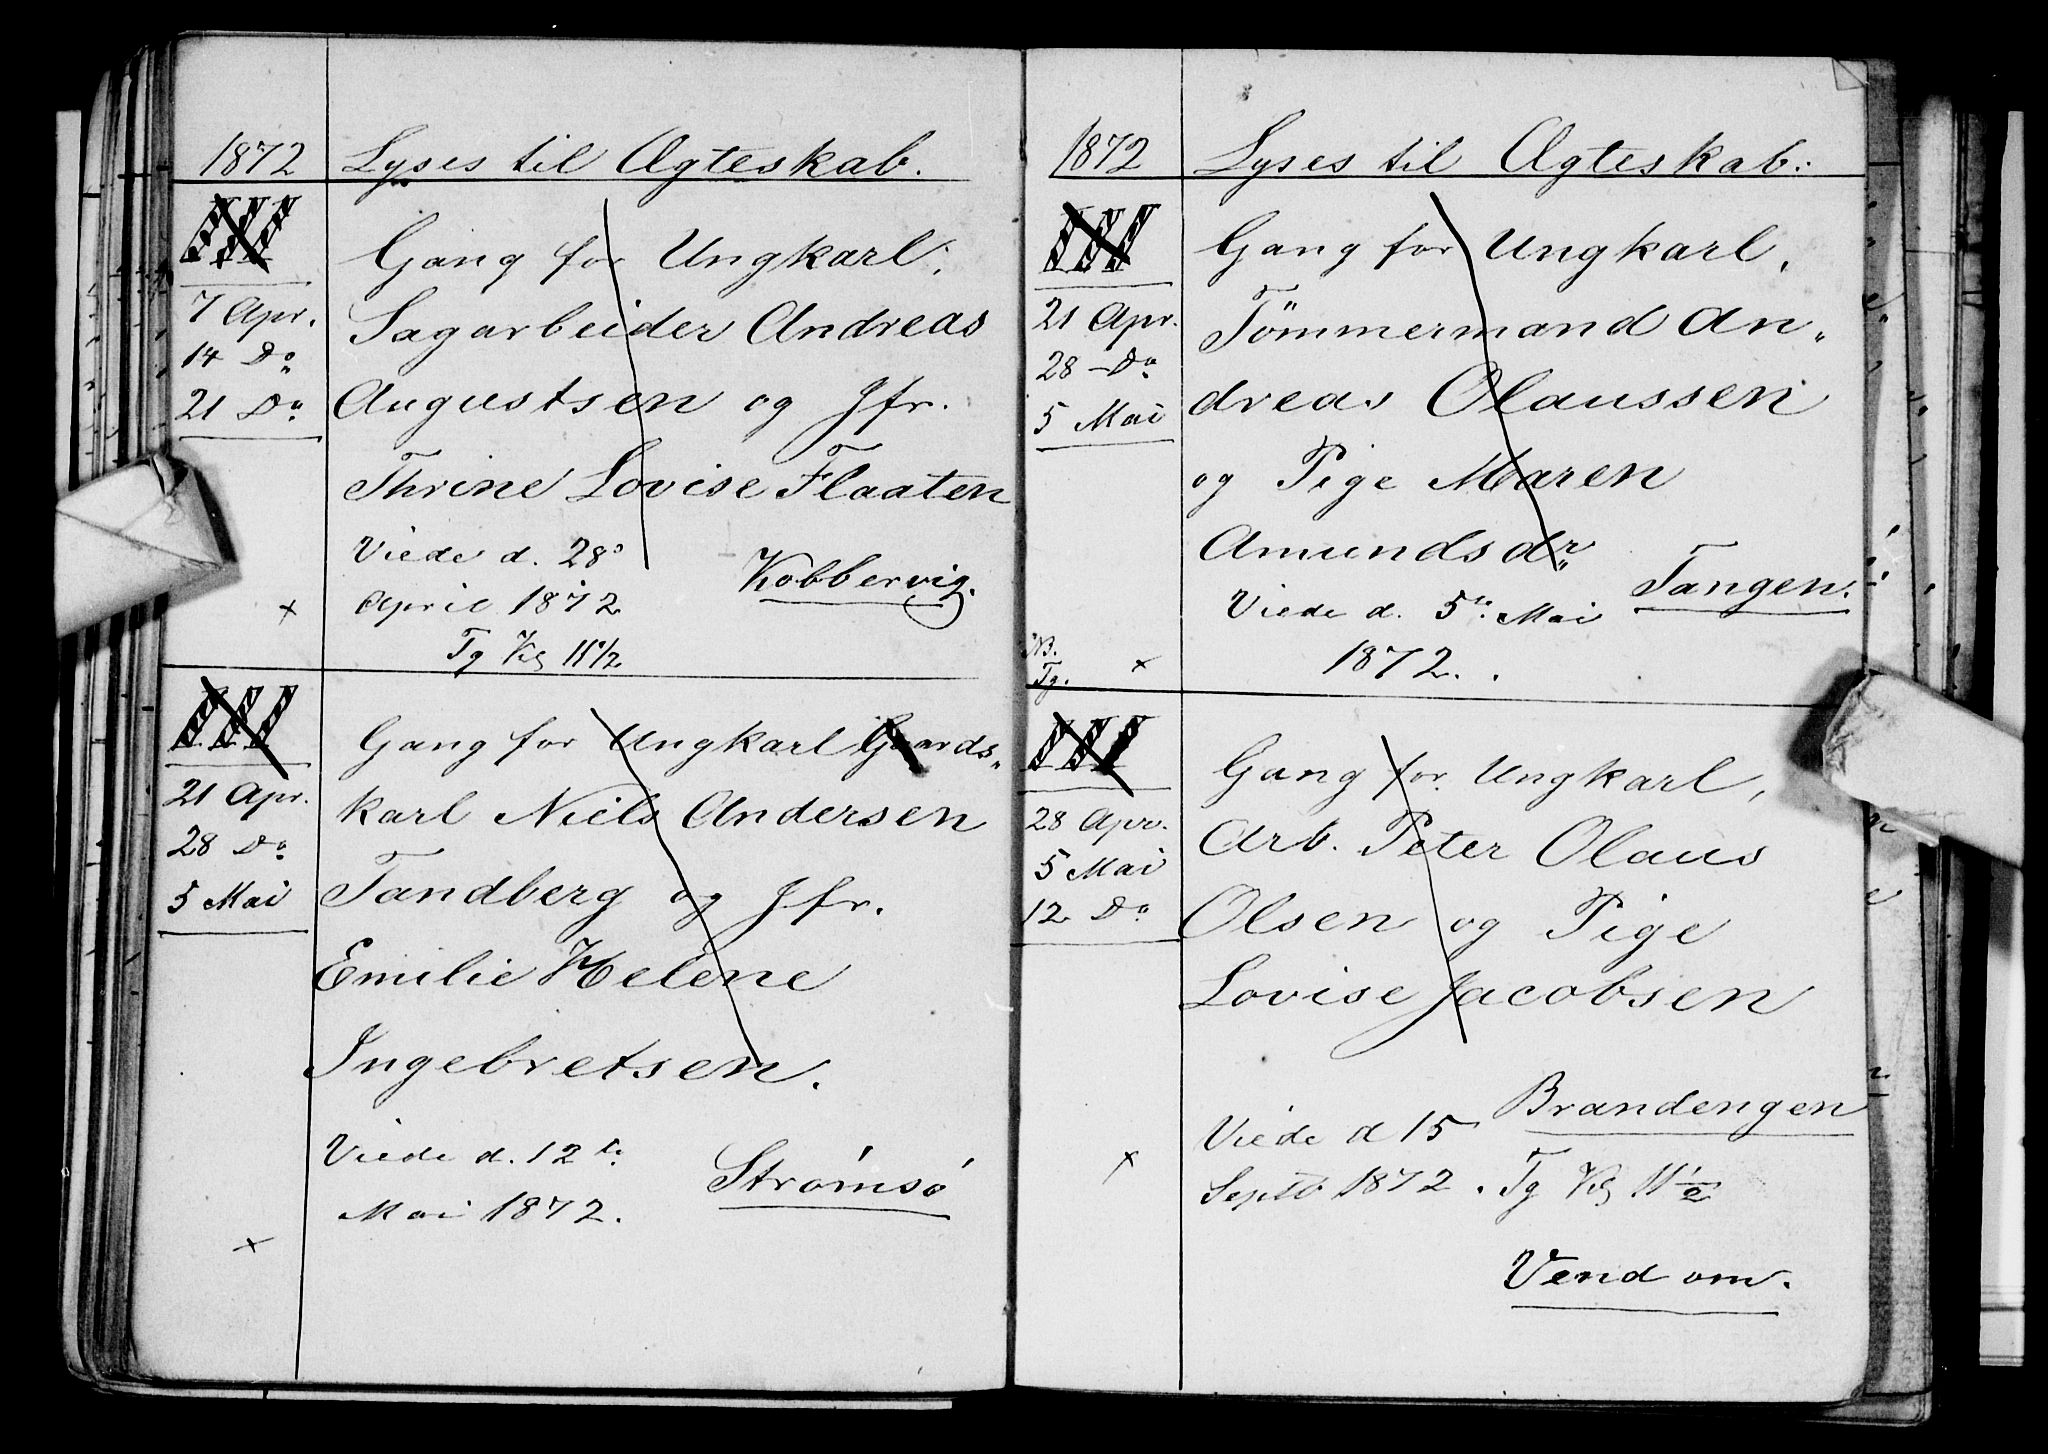 1872 Lyses til Ægteskab.
III
Gang for Ungkarl,
7 Apr. Sagarbeider Andreas
14 Do
21 Do Augustsen og Jfr.
Thrine Lovise Flaaten
Viede d. 28de
Kobbervig.
x April 1872
Tg Kl 11 1/2
III
Gang for Ungkarl Gaards-
21 Apr. karl Niels Andersen
28 Do
5 Mai Tandberg og Jfr.
Emilie Helene
Ingebretsen.
Viede d. 12te
Strømsø
Mai 1872.
x
1872 Lyses til Ægteskab:
III Gang for Ungkarl,
21 Apr. Tømmermand An-
28 - Do
5 Mai dreas Olaussen
og Pige Maren
Amundsdr.
Tangen.
Viede d. 5te Mai
NB.
Tg. x 1872.
III
Gang for Ungkarl,
28 Apr. Arb. Peter Olaus
5 Mai
12 Do Olsen og Pige
Lovise Jacobsen
Brandengen
Viede d 15
x Septb 1872. Tg Kl 11 1/2
Vend om.